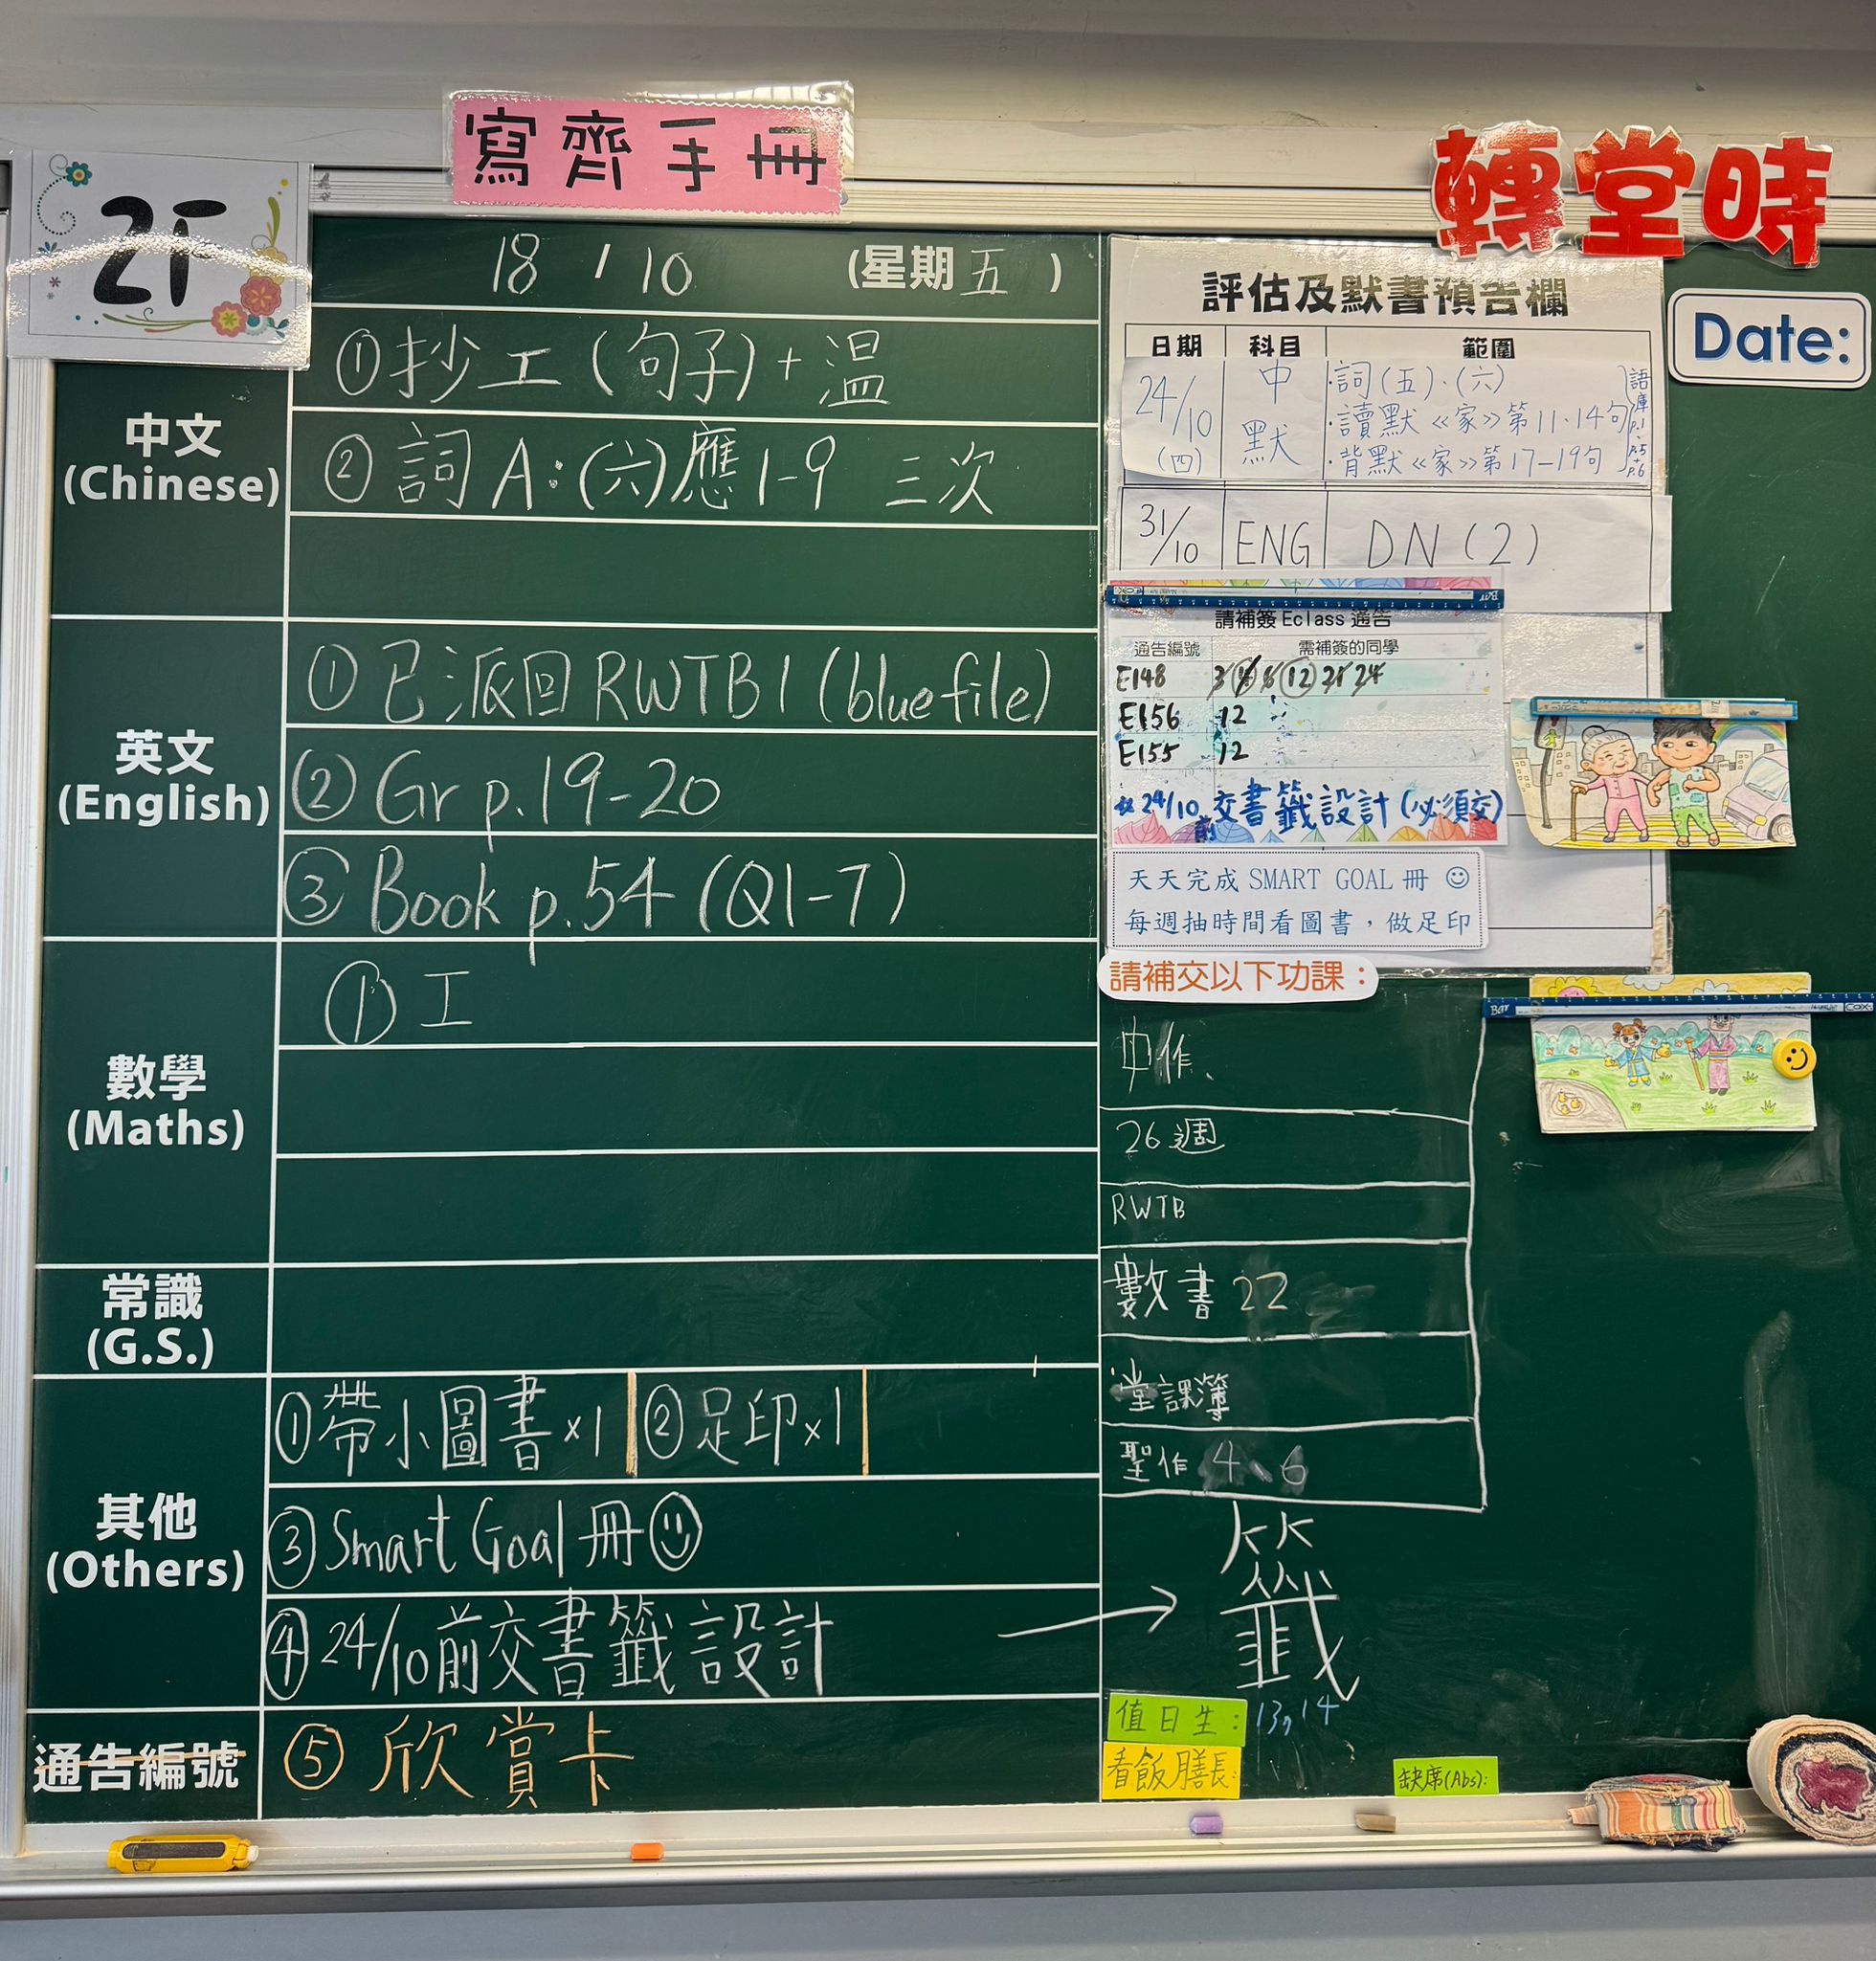 寫齊手冊
轉堂時
2F
18 / 10 (星期五)
中文
(Chinese)
①抄工(句子)+溫
②詞A:(六)應1-9 三次
英文
(English)
①已派回RWTB1(blue file)
②Gr p.19-20
③Book p.54 (Q1-7)
數學
(Maths)
①工
常識
(G.S.)
其他
(Others)
①帶小圖書×1 ②足印×1
③Smart Goal冊
④24/10前交書籤設計
通告編號
⑤欣賞卡
評估及默書預告欄
日期 科目 範圍
24/10 (四) 中默
·詞(五)·(六)
·讀默《家》第11、14句
·背默《家》第17-19句
語庫 p.1 p.5 p.6
31/10 ENG DN(2)
請補簽Eclass通告
通告編號 需補簽的同學
E148 12 24
E156 12
E155 12
24/10前交書籤設計(必須交)
天天完成SMART GOAL冊
每週抽時間看圖書，做足印
請補交以下功課：
中作、
26週
RWTB
數書 22
堂課簿
聖作 4、6
籤
值日生：13,14
看飯膳長:
缺席(Abs):
Date: